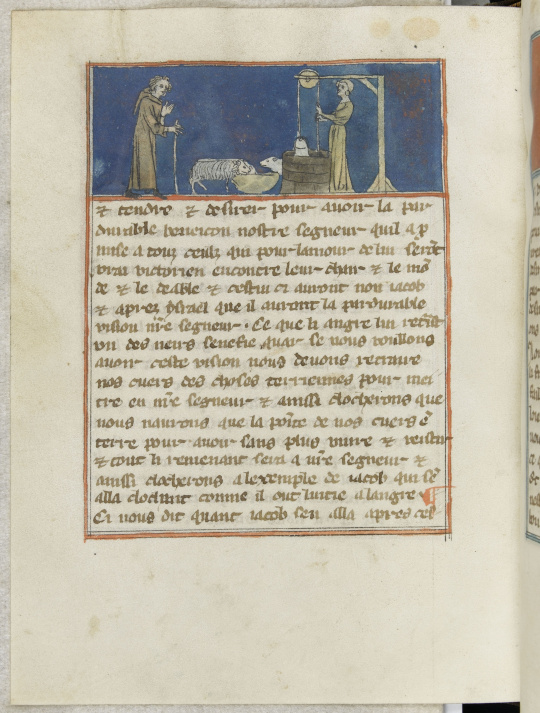 ⁊ tendre ⁊ desirer pour auoir la par
durable beneicon nostre segneur quil a p
mise a touz ceulz qui pour lamour de lui serōt
vrai victorien encontre leur char ⁊ le mō
de ⁊ le deable ⁊ cestui ci auront non iacob
⁊ aprez ysrael que il auront la pardurable
vision nr̄e segneur . Ce que li angre lui
vn des ners senefie quar se nous voullons
auoir ceste vision nous deuons retraire
nos cuers des choses terriennes pour met
tre en nr̄e segneur ⁊ ainssi clocherons que
nous naurons que la poīte de nos cuers ē
terre pour auoir sans plus viure ⁊ vestir
⁊ tout li remenant sera a nr̄e segneur ⁊
ainssi clocherons a lexemple de iacob qui sē
alla clochant comme il out luitie a langre
Ci nous dit quant iacob sen alla apres cel